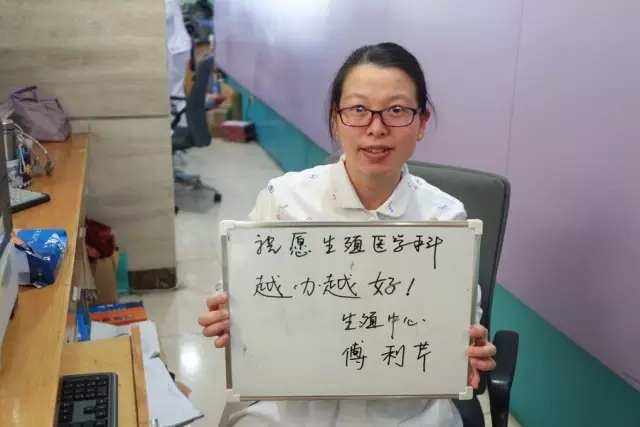 祝愿生殖医学科
越办越好！
生殖中心.
傅利芹